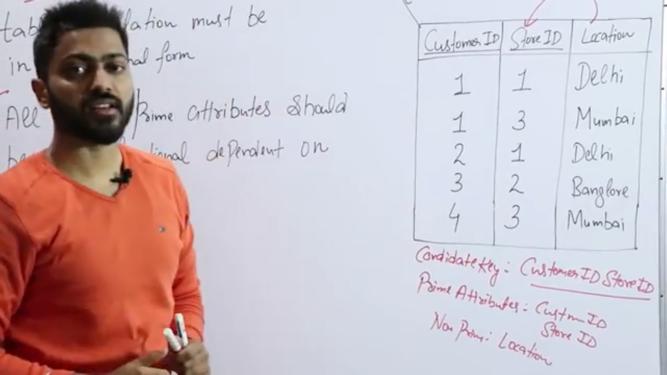 tab lation must be
in al form
All Prime attributes should
be tional dependent on
Customer ID Store ID Location
1 1 Delhi
1 3 Mumbai
2 1 Delhi
3 2 Banglore
4 3 Mumbai
Candidate Key: Customer ID Store ID
Prime Attributes: Custm ID
Store ID
Non Prim: Location